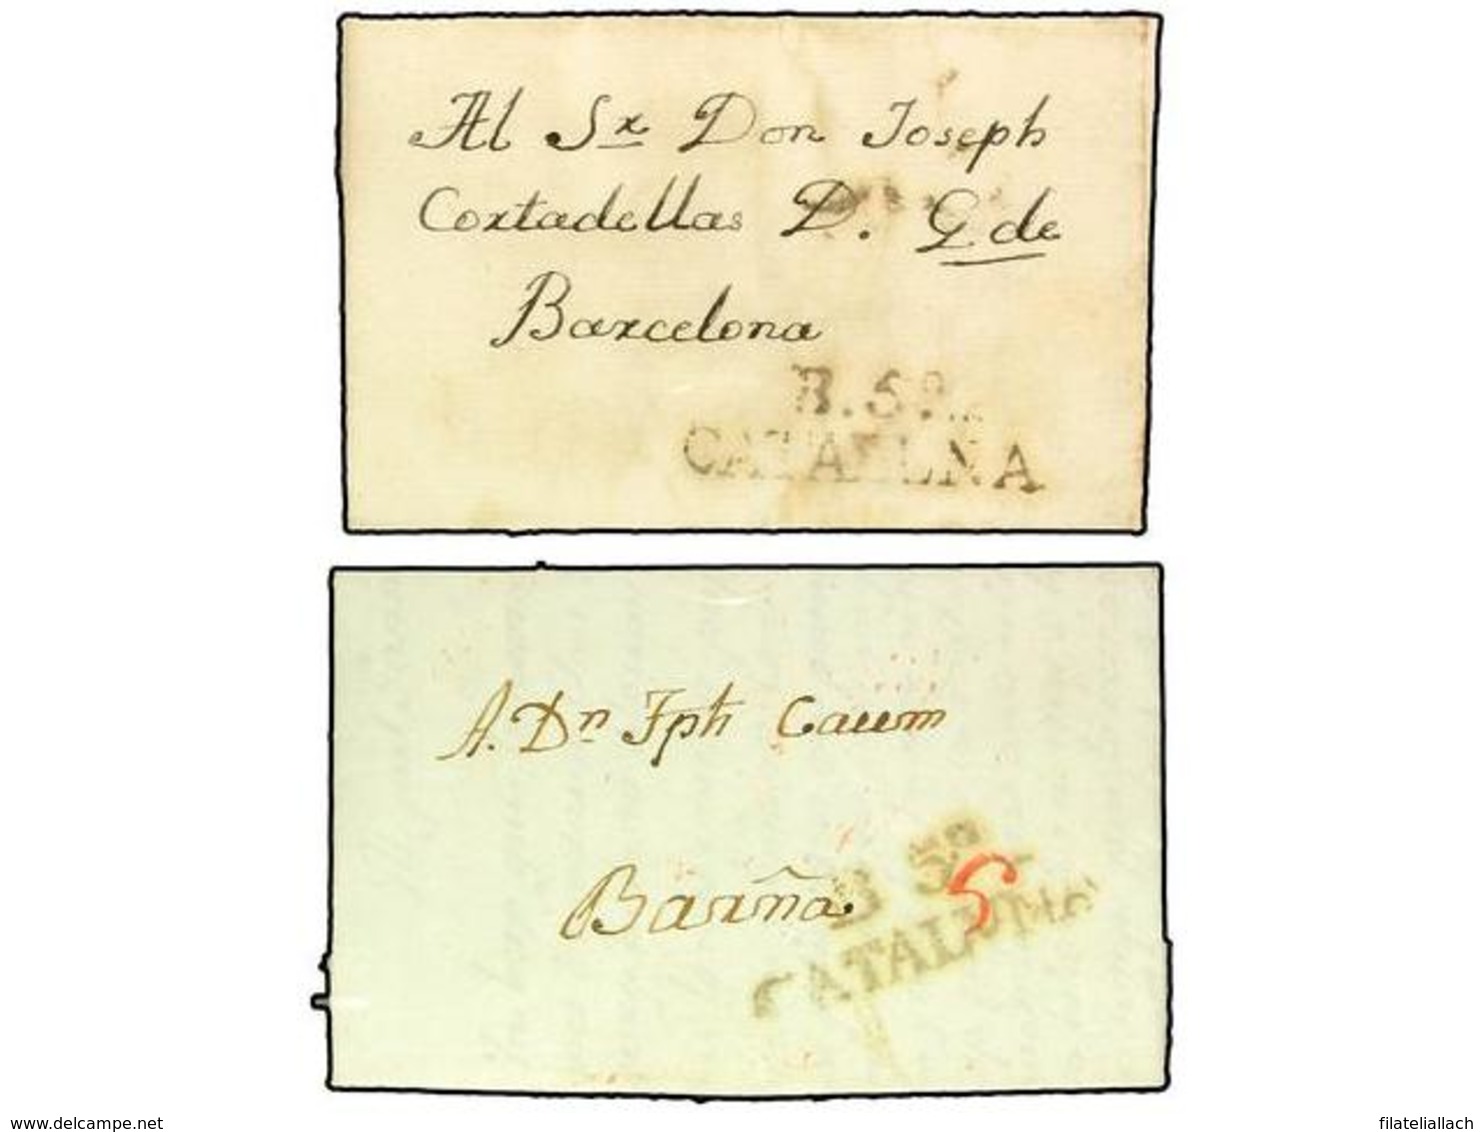 Al Sr Don Joseph
Cortadellas D. G de
Barcelona
B. 5º.
CATALUNA
A. Dn Jph Caum
Barña
B 5º
5
CATALUÑA
www.delcampe.net
filateliallach